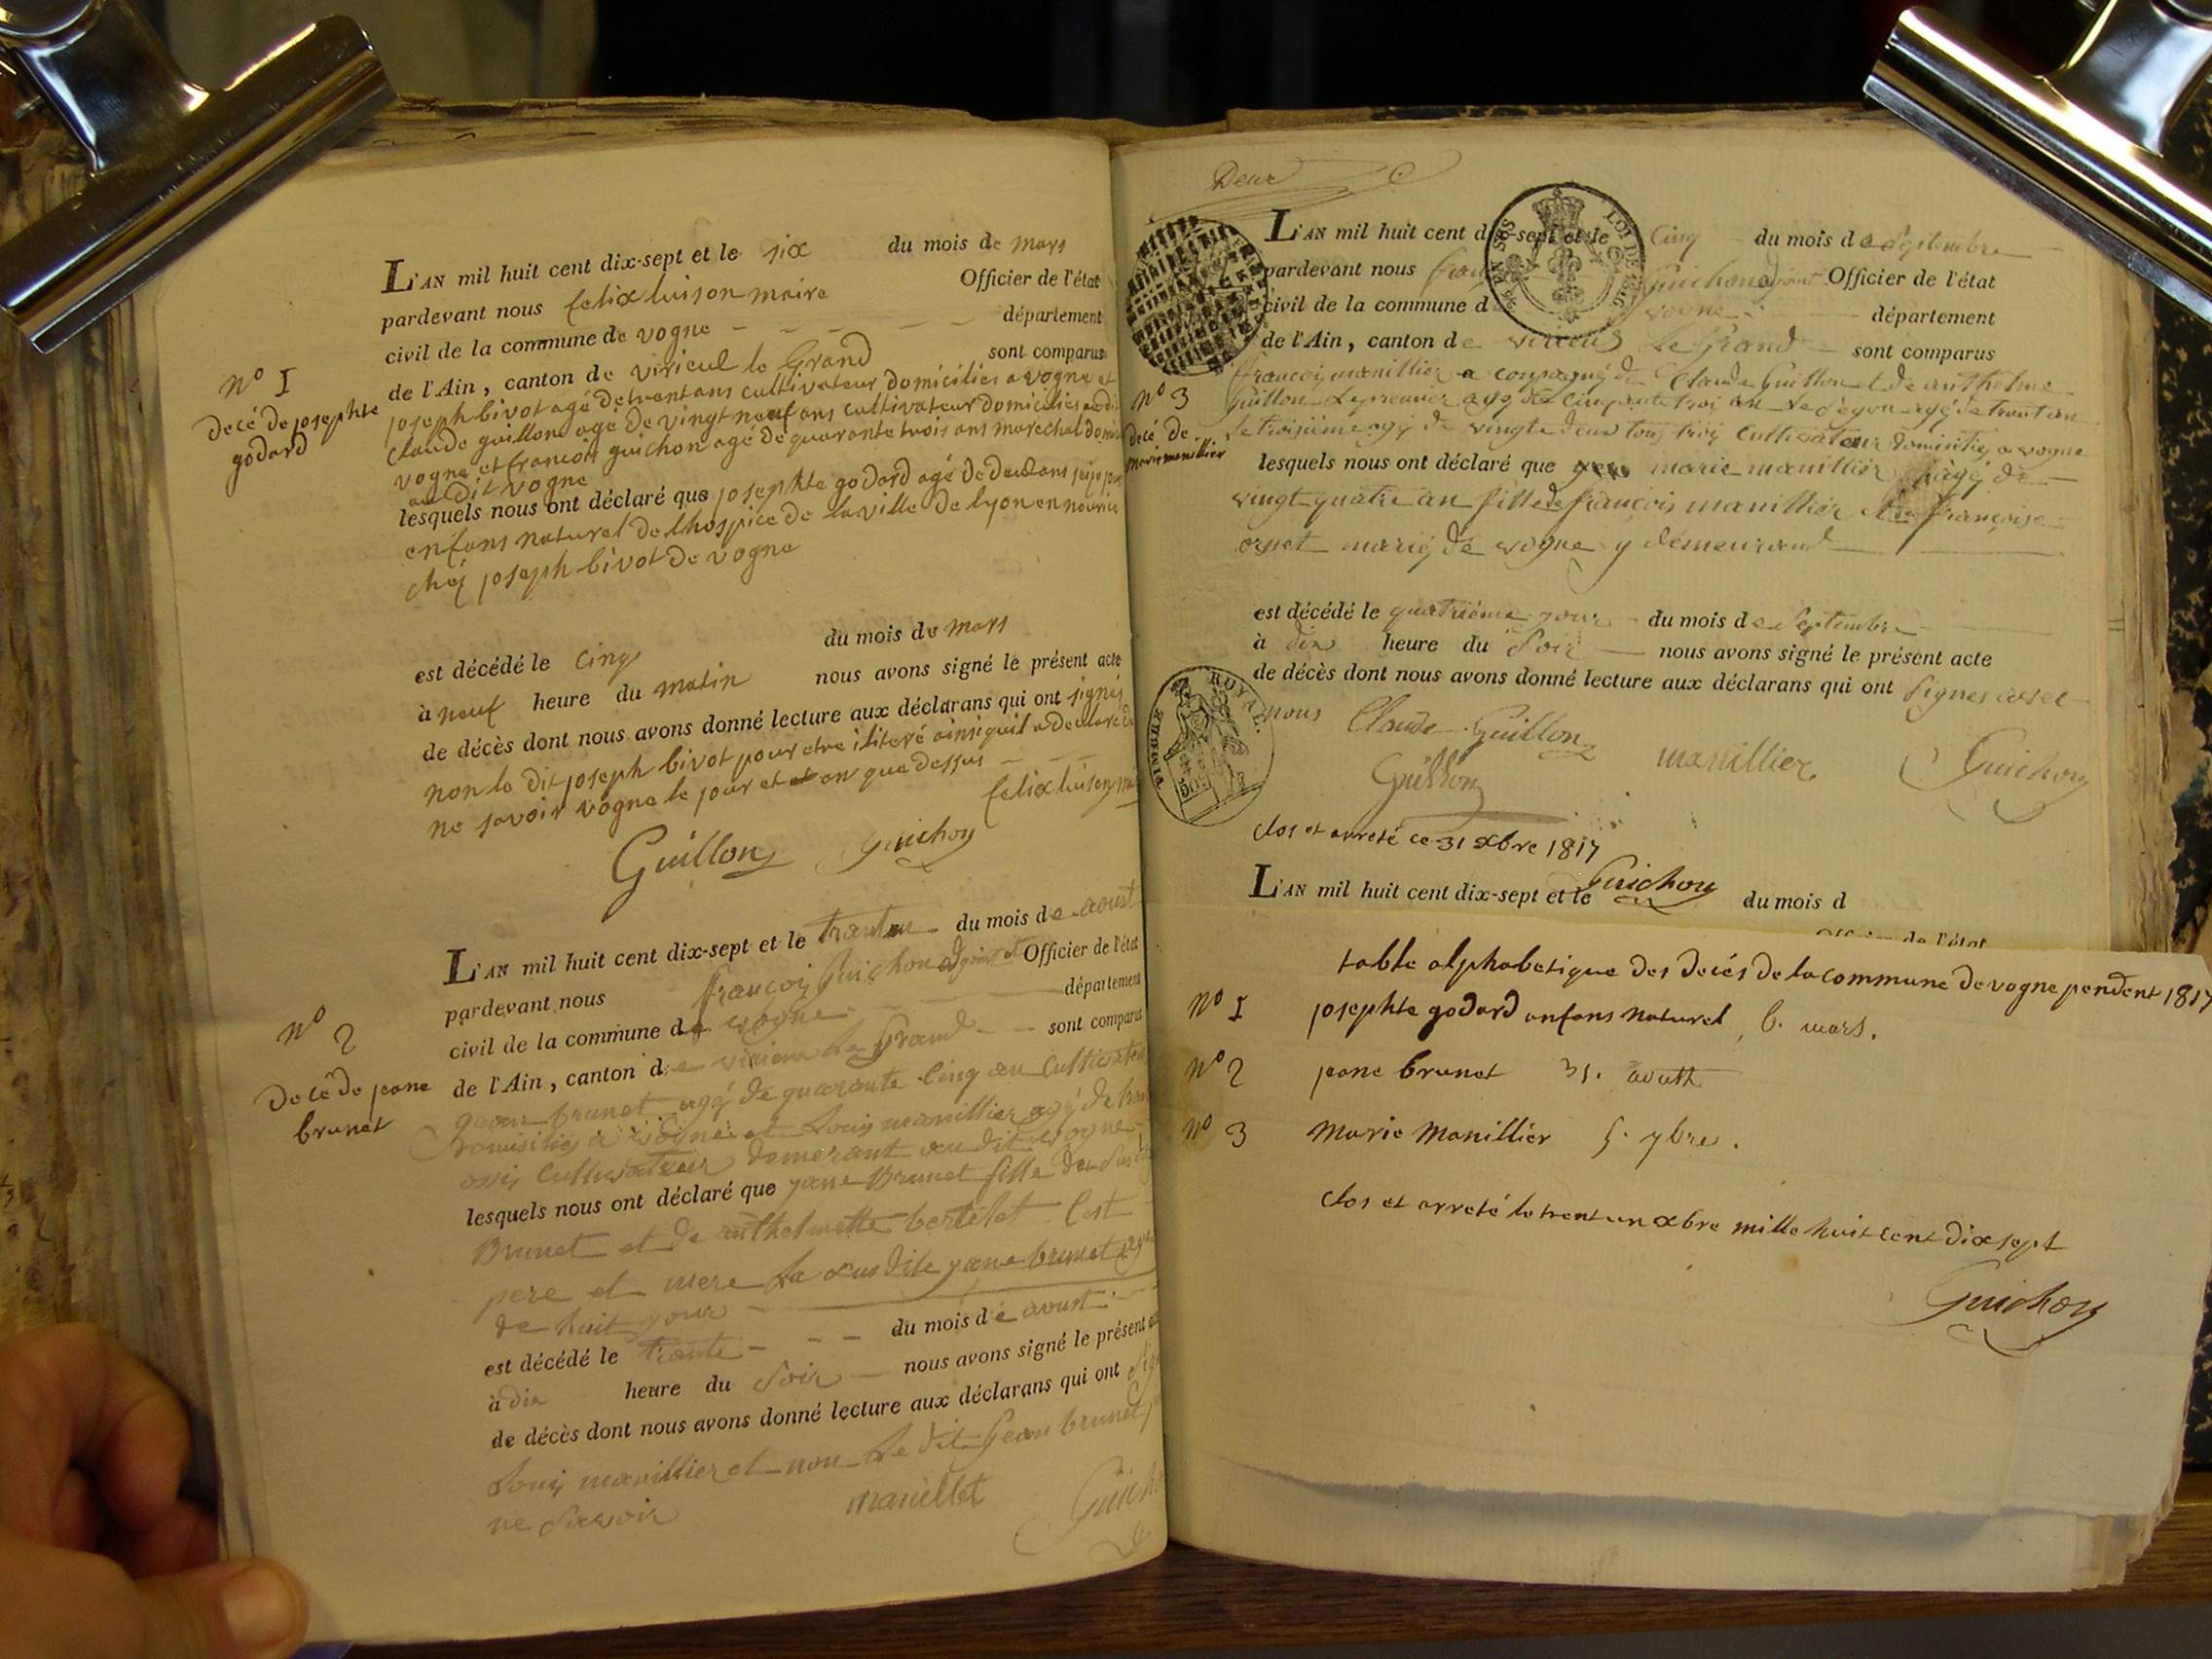 L'AN mil huit cent dix-sept et le six du mois de mars
pardevant nous felix luison maire Officier de l'état
civil de la commune de vogne département
de l'Ain, canton de virieul le Grand sont comparus
N° 1
decé de josephte
godard
joseph bivot agé de trent ans cultivateur domicilies a vogne et
claude guillond agé de vingt neuf ans cultivateur domicilies audit
vogne et francois guichon agé de quarante trois ans marechal
au dit vogne
lesquels nous ont déclaré que josephte godard agé de deux ans
enfans naturel de lhospice de la ville de lyon en nourice
chéz joseph bivot de vogne
est décédé le cinq du mois de mars
à neuf heure du matin nous avons signé le présent acte
de décès dont nous avons donné lecture aux déclarans qui ont signés
non le dit joseph bivot pour etre iliteré ainsi quil a declaré
ne savoir vogne le jour et an que dessus
felix luison
Guillon Guichon
L'AN mil huit cent dix-sept et le du mois de aoust
pardevant nous francoy Guichon adjoint et Officier de l'état
civil de la commune de vogne département
de l'Ain, canton de virieux le Grand sont comparus
N° 2
Decé de jeane
brunet
gean brunet agé de quarante cinq an cultivateur
domisiliés a vogne et Louis manillier agé de
cultivateur demorant au dit vogne
lesquels nous ont déclaré que jane Brunet fille de
Brunet et de anthelmette bertelet
pere et mere La susdite jane brunet
de huit jour
est décédé le trante du mois de avoust
à dix heure du Soir nous avons signé le présent
de décès dont nous avons donné lecture aux déclarans qui ont
Louis manillier et non Le dit Gean brunet
ne Savoir
manillet Guichon
Deux
L'AN mil huit cent dix-sept et le Cinq du mois de Septembre
pardevant nous Guichon adjoint Officier de l'état
civil de la commune d vogne département
de l'Ain, canton de virieux Le Grand sont comparus
N° 3
decé de
marie manillier
francois manillier a compagné de Claude Guillon et de anthelme
Guillon Le premier agé de cinquante troi an Le segon agé de trent an
Le troisième agé de vingte deux tous troi Cultivateur domisiliés a vogne
lesquels nous ont déclaré que marie manillier agé de
vingt quatre an fille de françois manillier et de françoise
marié de vogne y demeurand
est décédé le quatriéme jour du mois de Septembre
à dix heure du Soir nous avons signé le présent acte
de décès dont nous avons donné lecture aux déclarans qui ont Signes avec
nous Claude Guillon manillier Guichon
Guillon
TIMBRE ROYAL.
50
clos et arreté ce 31 xbre 1817
Guichon
L'AN mil huit cent dix-sept et le du mois d
Officier de l'état
table alphabetique des decés de la commune de vogne pendent 1817
N° 1 josephte godard enfans naturel, 6. mars.
N° 2 jeane brunet 31. aoust
N° 3 Marie Manillier 5. 7bre.
Clos et arreté le trent un xbre mille huit cent dix sept
Guichon